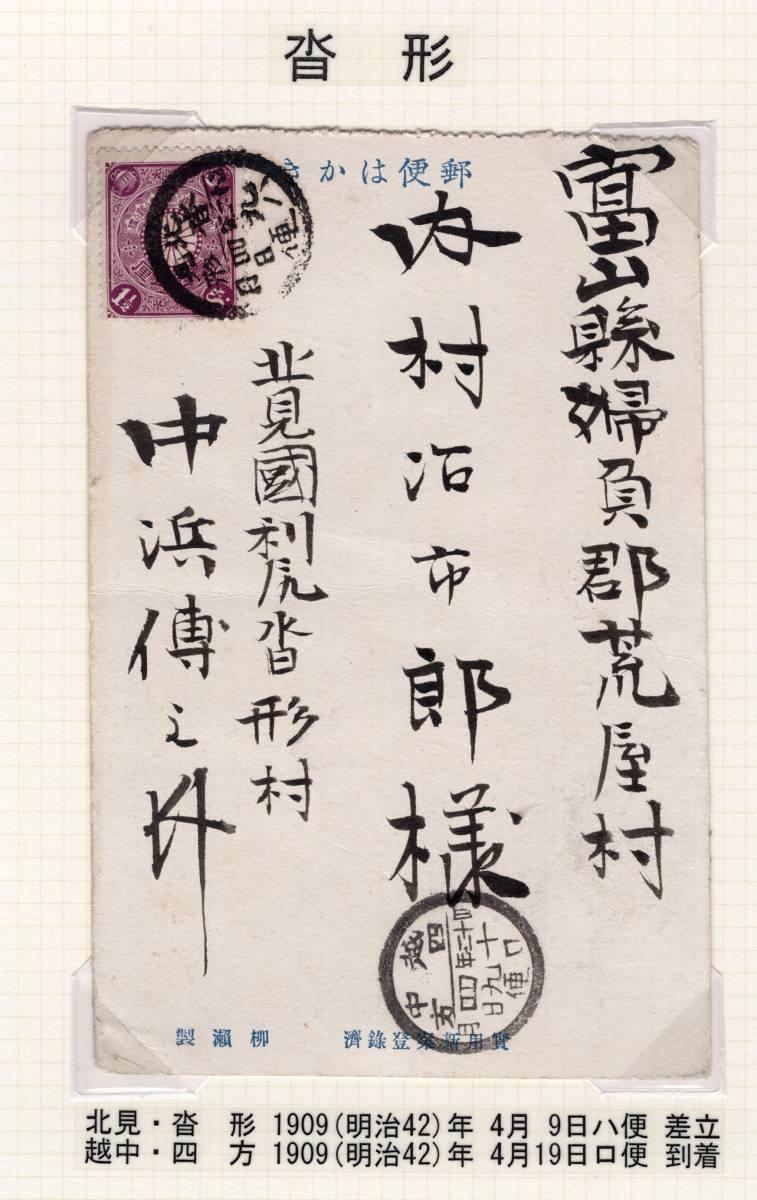 沓 形
郵便はかき
富山縣婦負郡荒屋村
内村治市郎様
北見國利尻沓形村
中浜傳之
1½
越中
四方
四十二年
四月
十九日
ロ便
實用新案登錄濟
柳瀨製
北見・沓 形 1909(明治42)年 4月 9日ハ便 差立
越中・四 方 1909(明治42)年 4月19日ロ便 到着